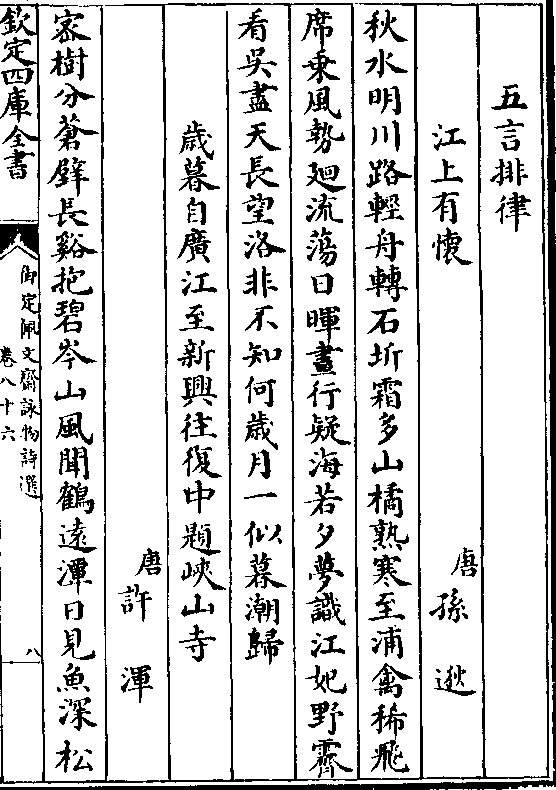 五言排律
江上有懷
唐孫逖
秋水明川路輕舟轉石圻霜多山橘熟寒至浦禽稀飛
席乗風勢廻流蕩日暉晝行疑海若夕夢識江妃野霽
看吳盡天長望洛非不知何歲月一似暮潮歸
歲暮自廣江至新興往復中題峽山寺
唐許渾
密樹分蒼壁長谿抱碧岑山風聞鶴遠潭日見魚深松
欽定四庫全書
御定佩文齋詠物詩選
卷八十六
八